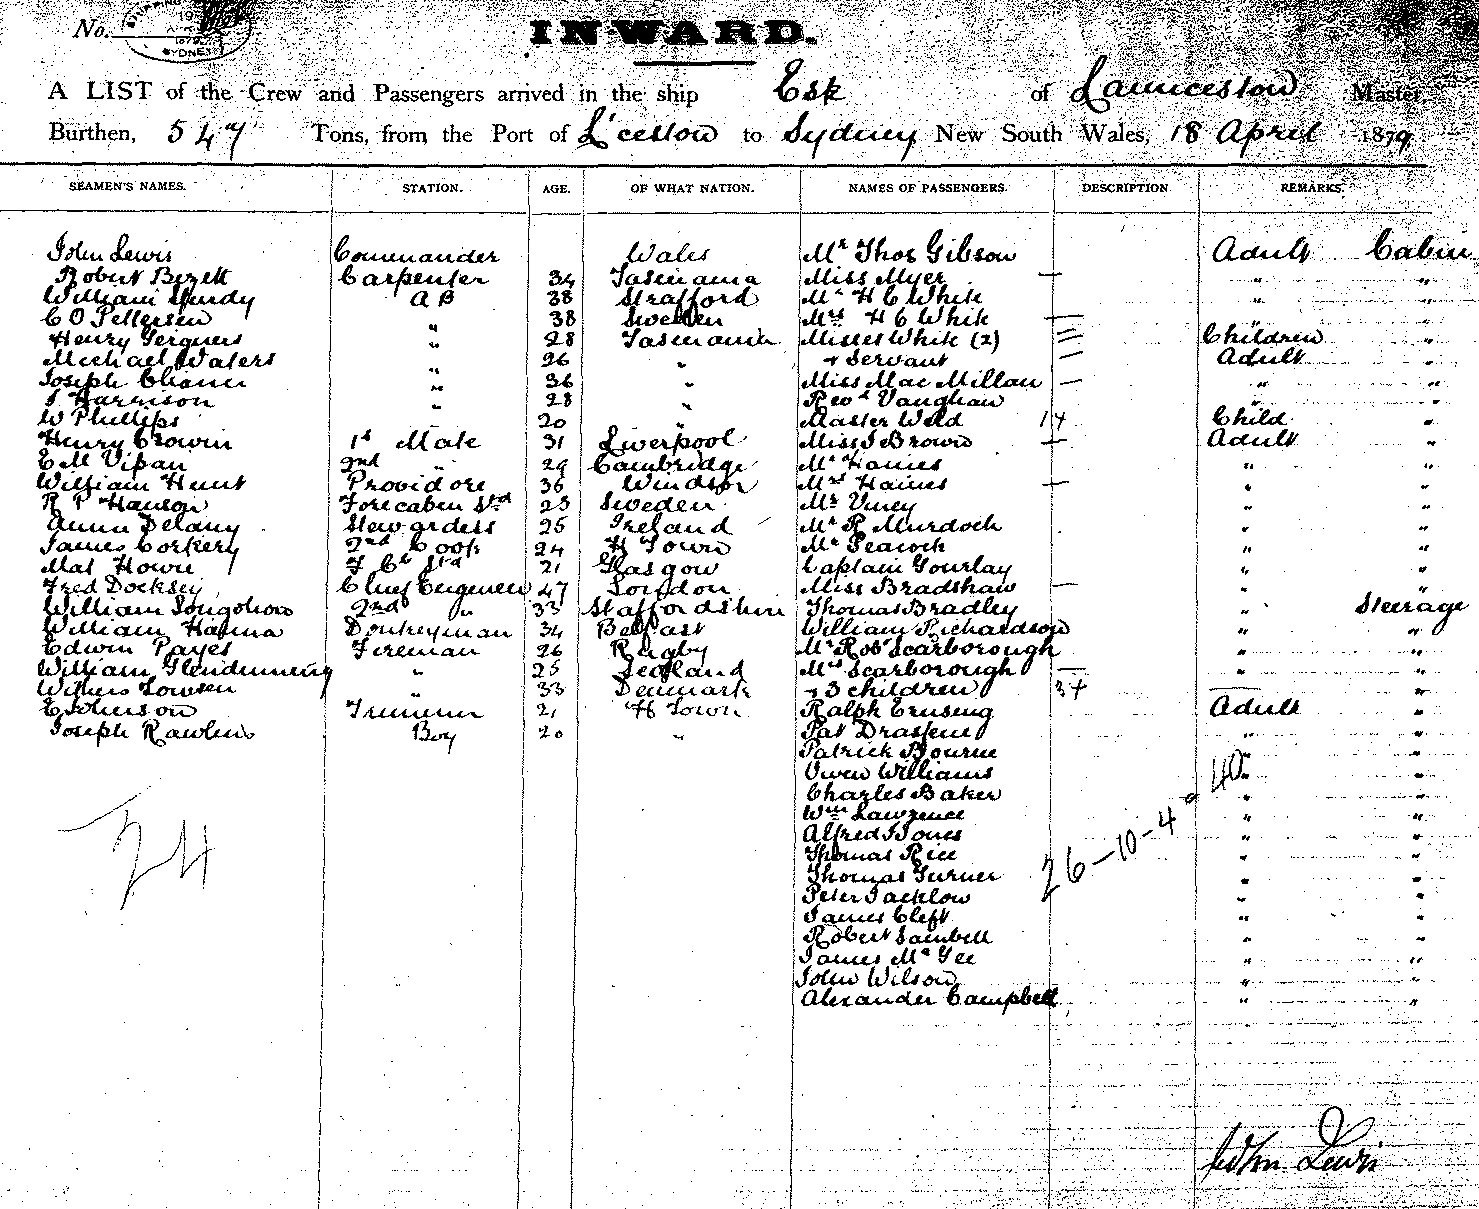 No.
SYDNEY
INWARD.
A LIST of the Crew and Passengers arrived in the ship Esk of Launceston Master,
Burthen, 547 Tons, from the Port of L'ceston to Sydney New South Wales, 18 April 1879
SEAMEN'S NAMES. STATION. AGE. OF WHAT NATION. NAMES OF PASSENGERS. DESCRIPTION REMARKS.
John Lewis Commander Wales Mr Thos Gibson Adult Cabin
Robert Carpenter 34 Tasmania Miss Myer — " "
William Gurdy A B 38 Strafford Mr H C White " "
C O Pettersen " 38 Sweden Mrs H C White — " "
Henry " 28 Tasmania Misses White (2) = Children "
Michael Waters " 26 " + Servant — Adult "
Joseph " 36 " Miss Mac Millan — " "
J Harrison " 28 " Revd Vaughan " "
W Phillips " 20 " Master Weld 1 + Child "
Henry Crowin 1st Mate 31 Liverpool Miss J Brown — Adult "
E M Vipan 2nd " 29 Cambridge Mr Haines " "
William Hunt Providore 36 Windsor Mrs Haines — " "
R P Hanson Forecabin Std 23 Sweden Mr Viney " "
Anna Delany Stewardess 25 Ireland Mr R Murdoch " "
James Corkery 2nd Cook 24 H Town Mr Peacock " "
Mat Howe F Cb Std 21 Glasgow Captain Gourlay " "
Fred Docksey Chief Engineer 47 London Miss Bradshaw — " "
William Longshow 2nd " 33 Staffordshire Thomas Bradley " Steerage
William Hanna Donkeyman 34 Belfast William Richardson " "
Edwin Payes Fireman 26 Rugby Mr Robt Scarborough " "
William Glendinning " 25 Scotland Mrs Scarborough — " "
Lowsen " 33 Denmark + 3 children 3 + — "
Trimmer 21 H Town Ralph Adult "
Joseph Rawlins Boy 20 " Pat " "
Patrick Bourne " "
Owen Williams " "
Charles Baker " "
Wm Lawrence " "
Alfred B Jones " "
Thomas Rice " "
Thomas Turner " "
Peter Jacklow " "
James Cleft " "
Robert Sambell " "
James McGee " "
John Wilson " "
Alexander Campbell " "
24
26-10-4= 40
John Lewis